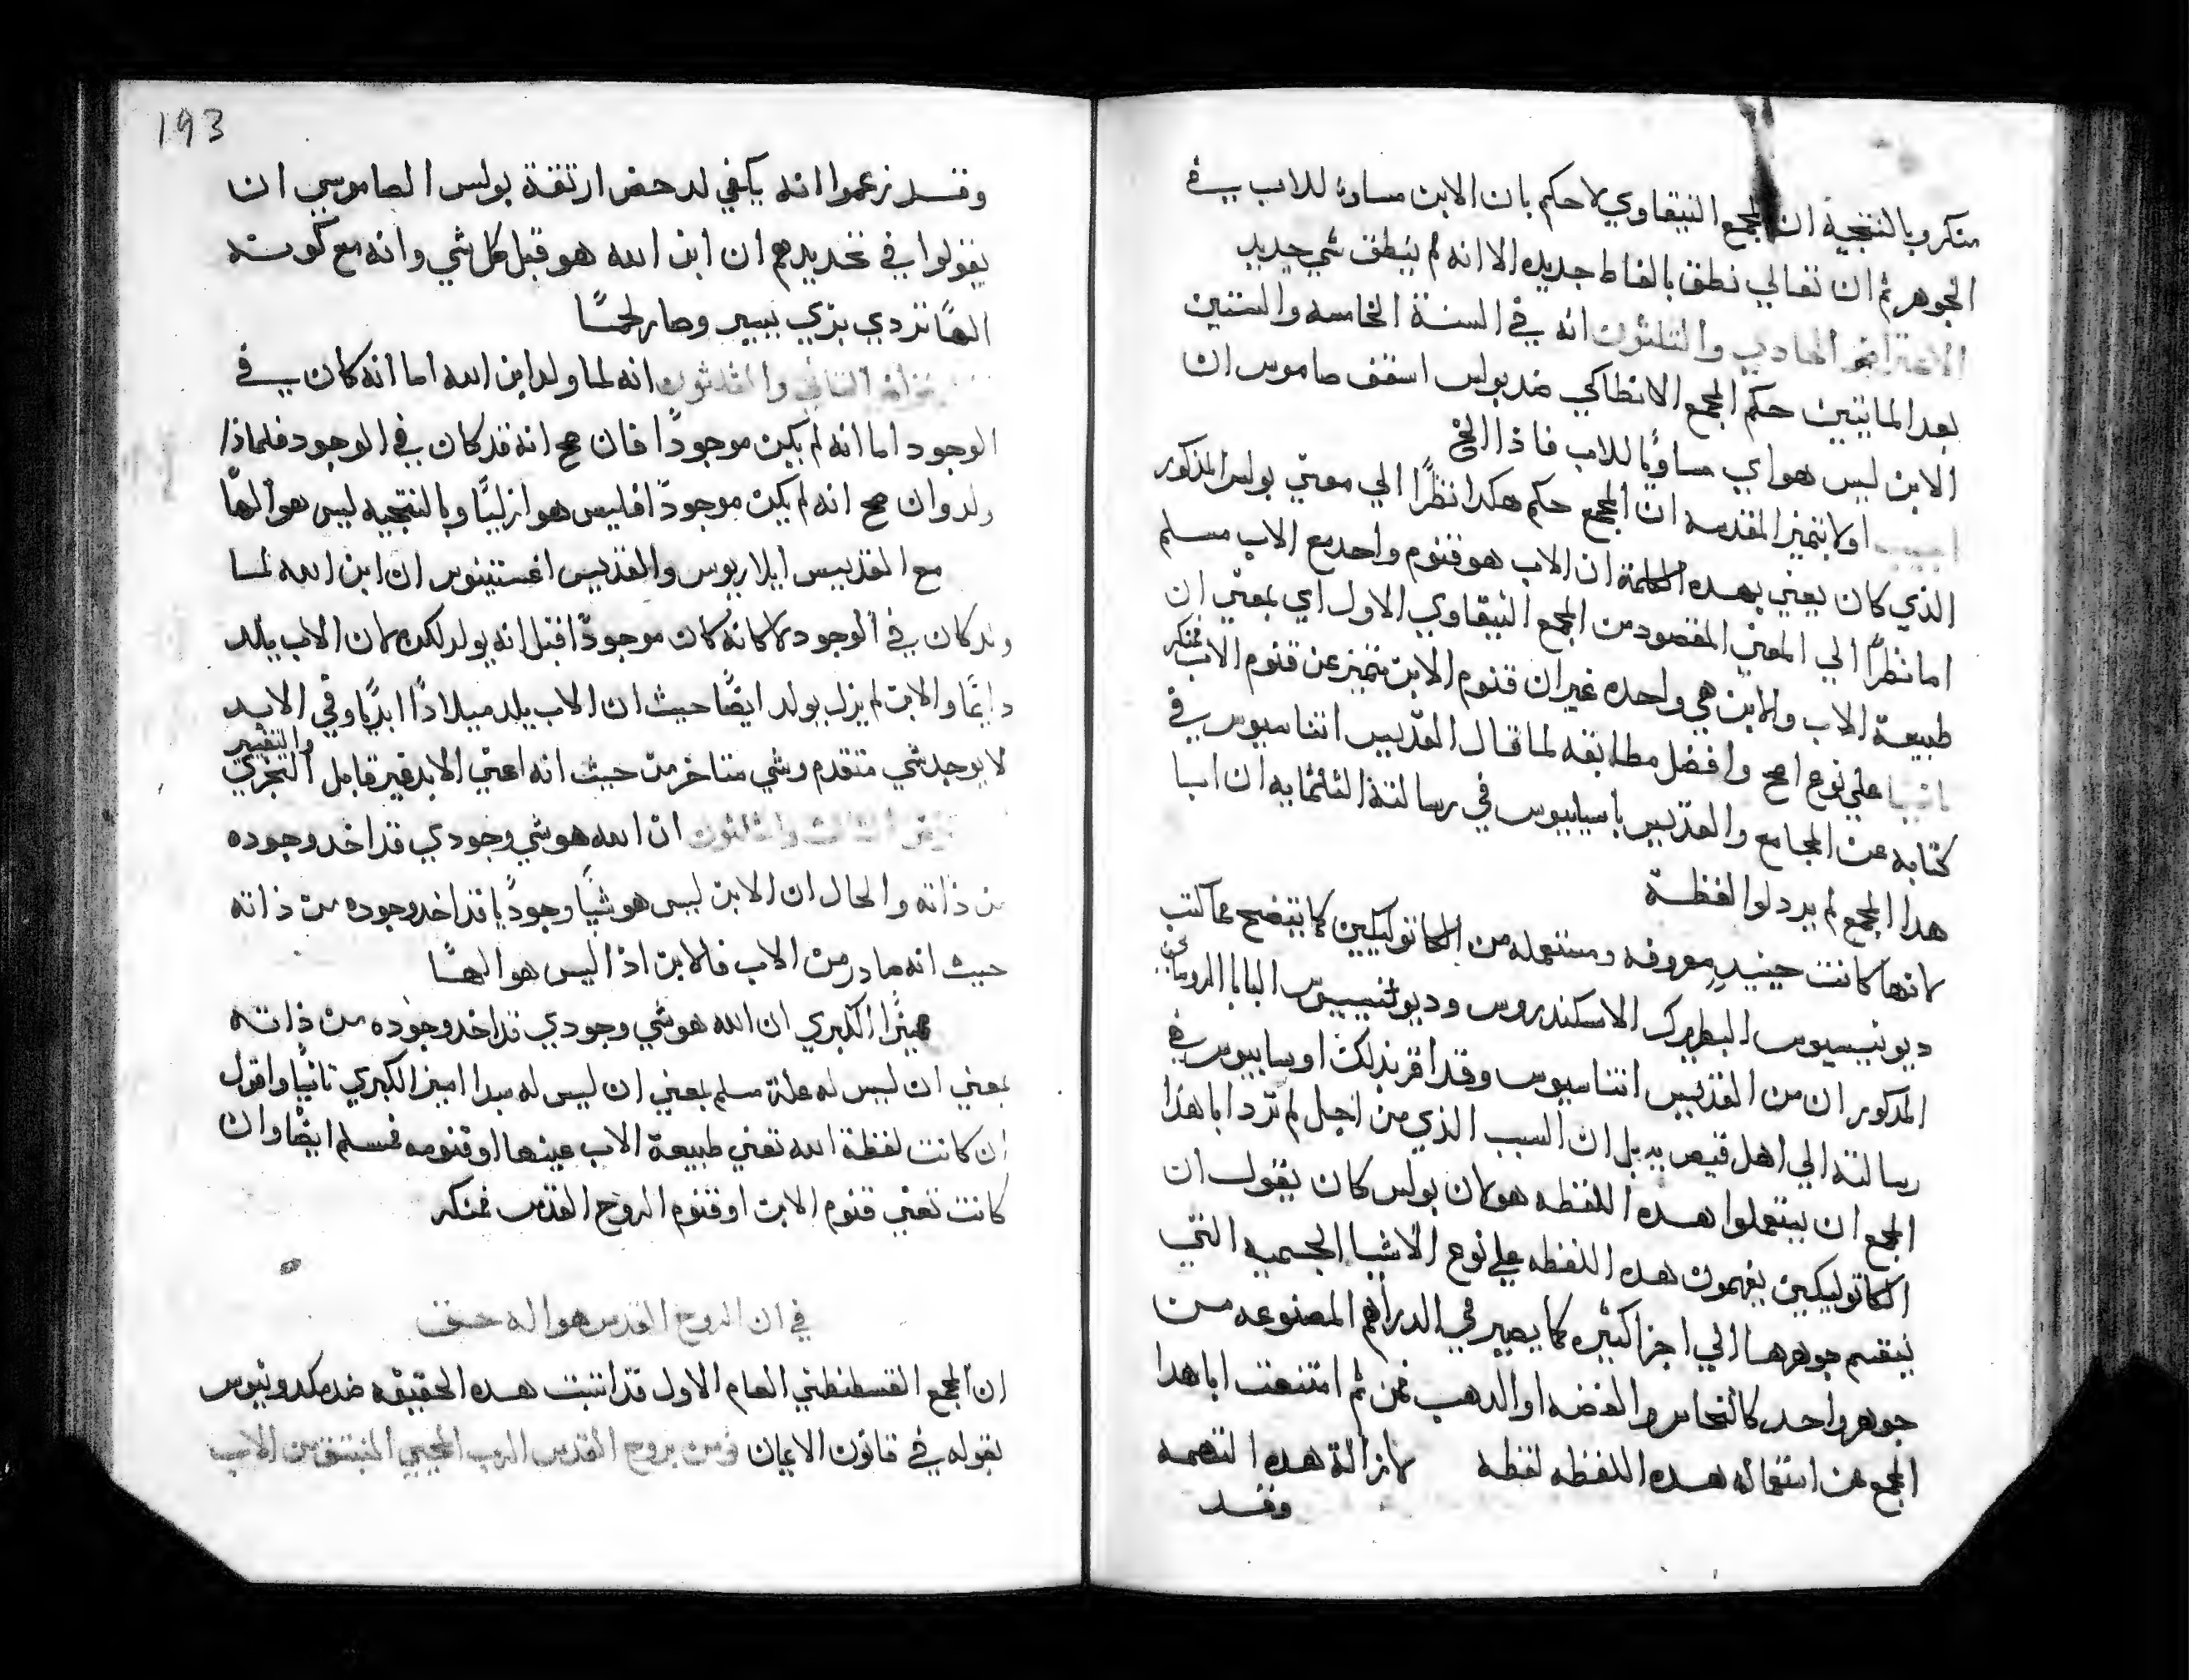 منكر وبالنتيجة ان المجمع النيقاوي لاحكم بان الابن مساوٍ للاب في
الجوهر ثم ان تعالي نطق بالفاط جديده الا انه لم ينطق شي جديد
الاعتراض الحادي والثلثون انه في السنة الخامسه والستين
بعد المايتين حكم المجمع الانطاكي ضد بولس اسقف صاموس ان
الابن ليس هو اي مساويًا للاب فاذا الخ
اجيب اولا بتميز المقدسه ان المجمع حكم هكذا نظرًا الي معني بولس المذكور
الذي كان يعني بهده الكلمة ان الاب هو قنوم واحد مع الاب مسلم
اما نظرًا الي المعني المقصود من المجمع النيقاوي الاول اي بمعني ان
طبيعة الاب والابن هي واحده غير ان قنوم الابن متميز عن قنوم الاب فمنكر
ثانيا علي نوع اصح وافضل مطابقه لما قال القديس اتناسيوس في
كتابه عن المجامع والقديس باسيليوس في رسالتة الثلثمايه ان ابا
هدا المجمع لم يردلوا لفظة
لانها كانت حينيدٍ معروفه ومستعمله من الكاتوليكين كما يتضح مما كتب
ديونيسيوس البطريرك الاسكندروس وديونيسيوس البابا الروماني
المدكوران من القديس اتناسيوس وقد اقر بذلك اوسابيوس في
رسالته الي اهل قيصريه بل ان السبب الذي من اجل لم ترد ابا هذا
المجمع ان يستعملوا هده اللفظه هو لان بولس كان يقول ان
الكاتوليكين يفهمون هده اللفظه علي نوع الاشيا الجسميه التي
ينقسم جوهرها الي اجزا كثيره كما يصير في الدراهم المصنوعه من
جوهر واحد كالنحاس والفضه او الدهب فمن ثم امتنعت ابا هدا
المجمع من استعماله هده اللفظه لفظه لازالة هده التهمه
وقد
193
وقد زعموا انه يكفي لدحض ارتقة بولس الصاموسي ان
يقولوا في تحديدهم ان ابن الله هو قبل كل شي وانه مع كونه
الهًا تردي بزي بسير وصار لحمًا
الثاني والثلثون انه لما ولد ابن الله اما انه كان في
الوجود اما انه لم يكن موجودًا فان صح انه قد كان في الوجود فلماذا
ولد وان صح انه لم يكن موجودًا فليس هو ازليًا وبالنتجيه ليس هو الهًا
مع القديس ايلاريوس والقديس اغستينوس ان ابن الله لما
ولد كان في الوجود لا كانه كان موجودًا قبل انه يولد لكن لان الاب يلد
دايمًا والابن لم يزل يولد ايضًا حيث ان الاب يلد ميلادًا ابديًا وفي الابد
لا يوجد شي متقدم وشي متاخر من حيث انه اعني الابد غير قابل التجزي والتغيير
الثالث والثلثون ان الله هو شي وجودي قد اخد وجوده
من ذاته والحال ان الابن ليس هو شيًا وجوديًا قد اخد وجوده من ذاته
حيث انه صادر من الاب فالابن اذا ليس هو الهًا
مميزًا الكبري ان الله هو شي وجودي قد اخد وجوده من ذاته
بمعني ان ليس له علة مسلم بمعني ان ليس له مبدا اميز الكبري ثانيًا واقول
ان كانت لفظة الله تعني طبيعة الاب عينها او قنومه فمسلم ايضًا وان
كانت تعني قنوم الابن او قنوم الروح القدس فمنكر
في ان الروح القدس هو اله حق
ان المجمع القسطنطني العام الاول قد اتبت هده الحقيقه ضد مكدونيوس
بقوله في قانون الايمان نومن بروح القدس الرب المحيي المنبثق من الاب